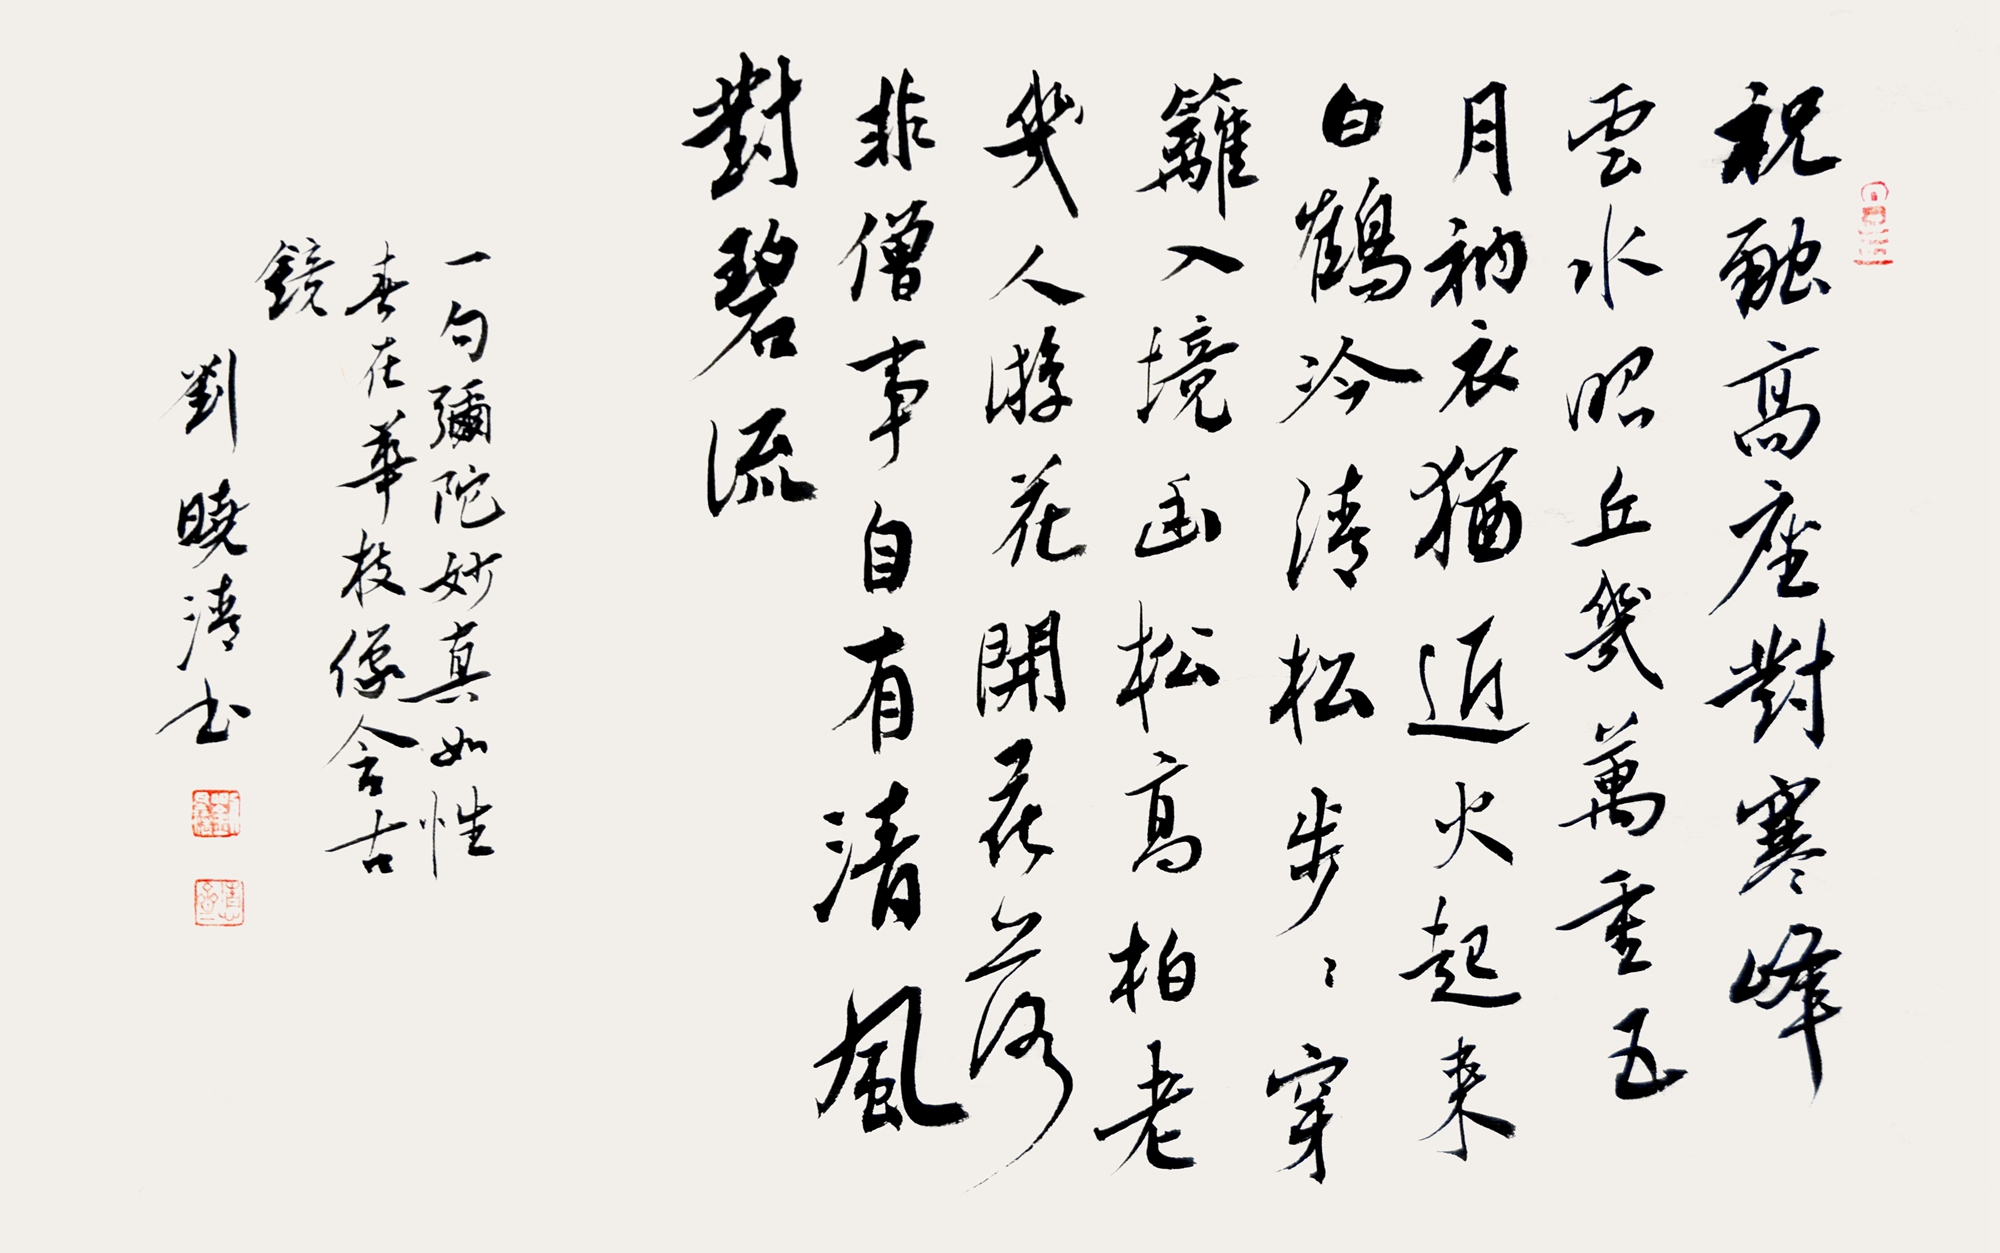 祝融高座對寒峰
雲水昭丘幾萬重五
月衲衣猶近火起來
白鶴冷清松步〻穿
籬入境幽松高柏老
幾人游花開花落
非僧事自有清風
對碧流
一句彌陀妙真如性
春在華枝像含古
鏡
劉曉清书